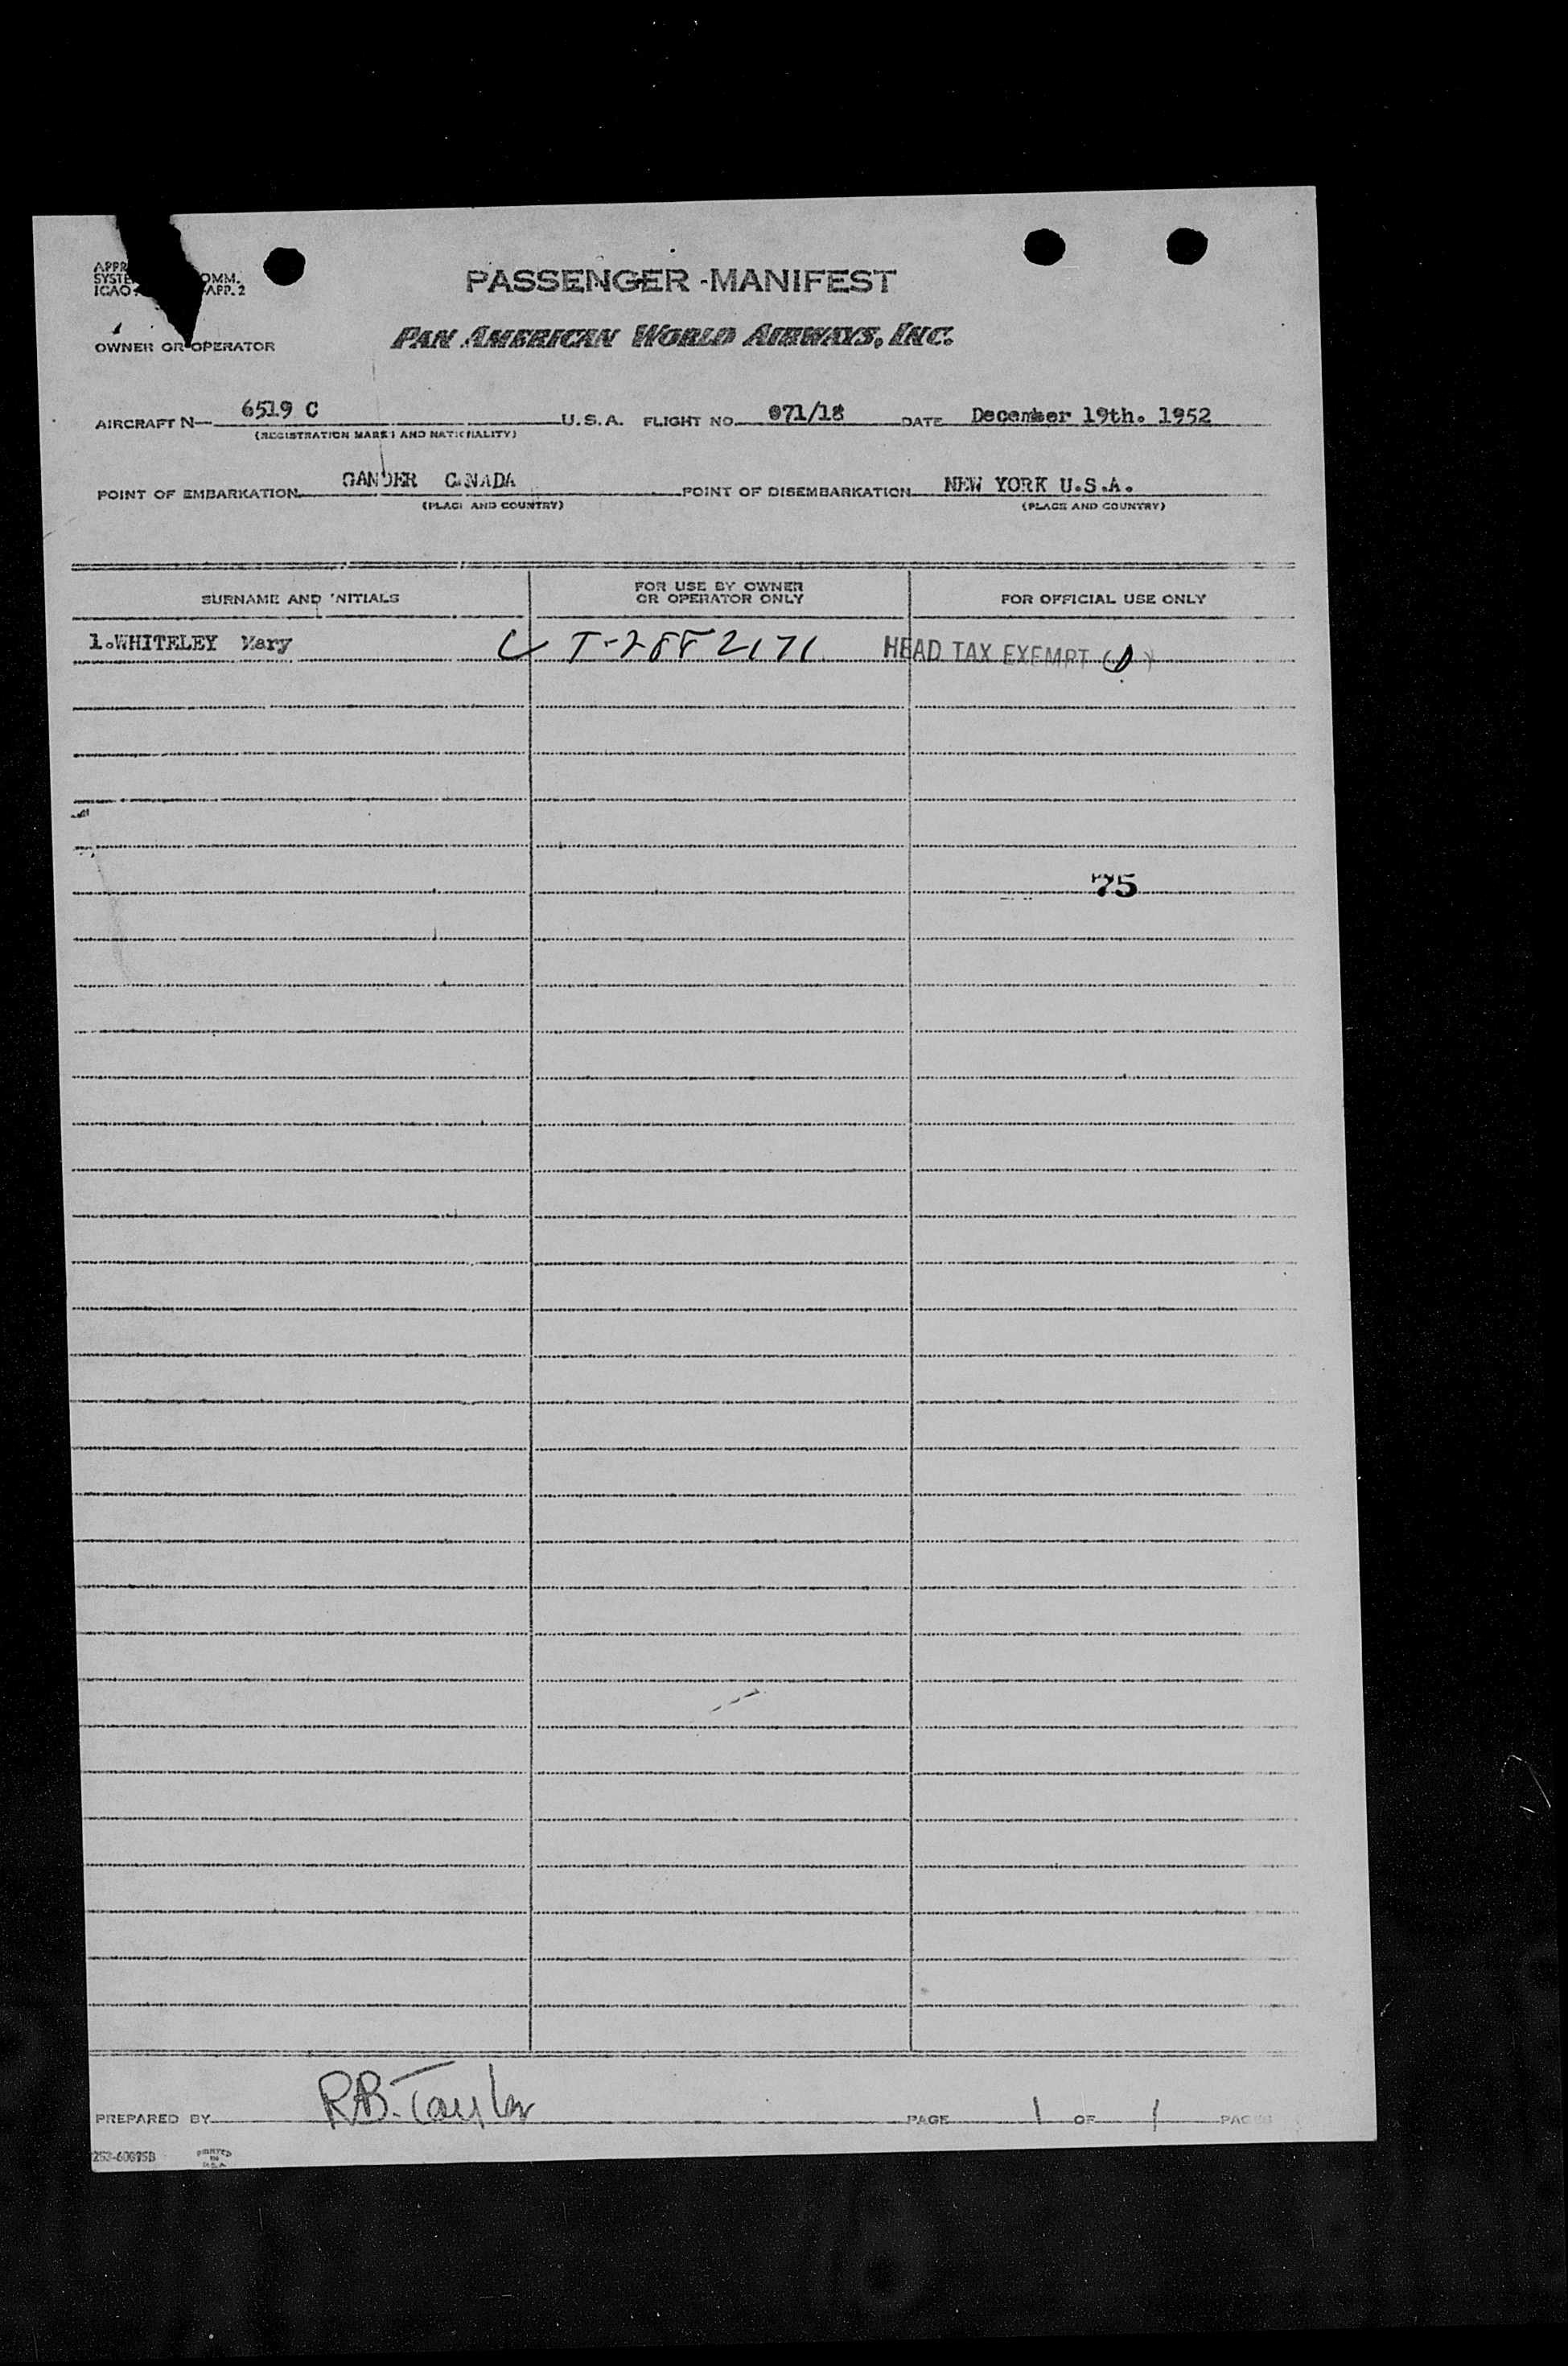 PASSENGER -MANIFEST
OMM.
ICAO APP. 2
OWNER OR OPERATOR
PAN AMERICAN WORLD AIRWAYS, INC.
AIRCRAFT N— 6519 C U.S.A. FLIGHT NO. 071/18 DATE December 19th. 1952
(REGISTRATION MARKS AND NATIONALITY)
POINT OF EMBARKATION GANDER CANADA POINT OF DISEMBARKATION NEW YORK U.S.A.
(PLACE AND COUNTRY) (PLACE AND COUNTRY)
SURNAME AND INITIALS FOR USE BY OWNER OR OPERATOR ONLY FOR OFFICIAL USE ONLY
1.WHITELEY Mary C T-2882171 HEAD TAX EXEMPT
75
PREPARED BY R.B. Taylor PAGE 1 OF 1 PAGES
PRINTED
IN
U.S.A.